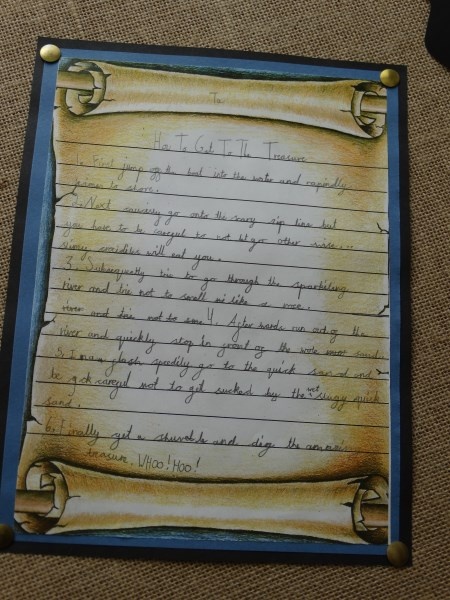 To
How To Get To The Treasure
1. First jump off the boat into the water and rapidly
swim to shore.
2. Next cautiously go onto the scary zip line but
you have to be careful to not let go other wise...
slimy crocodiles will eat you.
3. Subsequetly trie to go through the sparkeling
river and trie not to smell
river and trie not to 4. After wards run out of the
river and quickly stop in front of the wide moor sand.
5. In a flash speedily go to the quick sand and
be careful not to get sucked by the wet quick
sand.
6. Finally get a shuvel and dig the
treasure. WHOO! HOO!